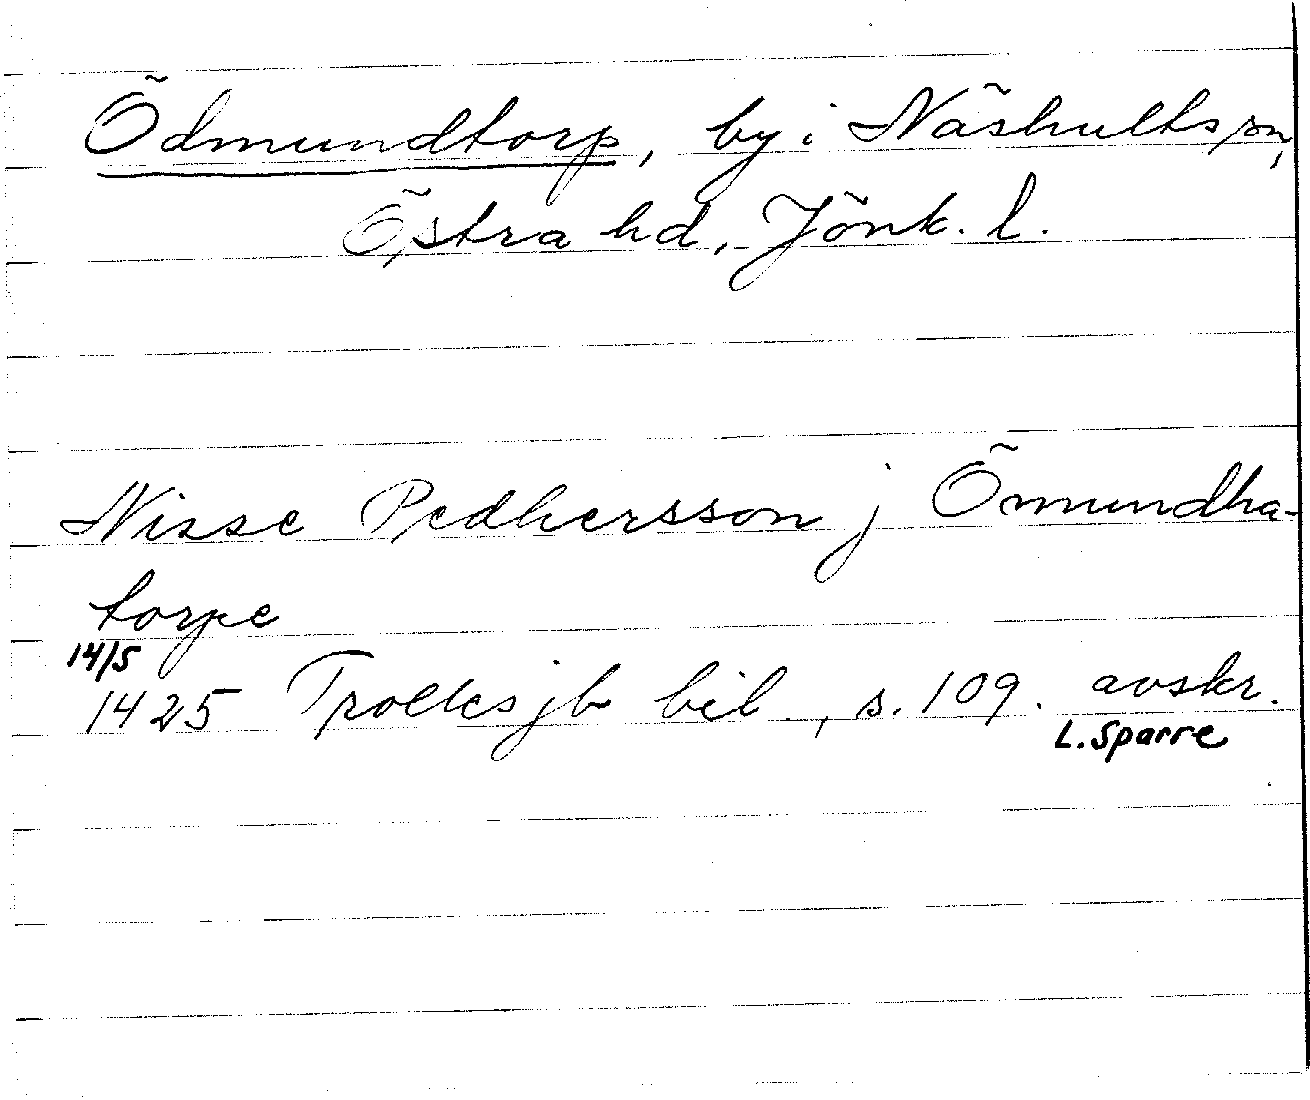 Ödmundtorp, by i Näshults sn,
Östra hd, Jönk. l.
Nisse Pedhersson j Ömundha-
torpe
14/5
1425 Trollesjb bil., s. 109. avskr.
L. Sparre